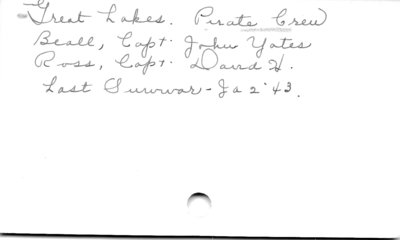 Great Lakes. Pirate Crew
Beall, Capt. John Yates
Ross, Capt. David H.
Last Survivor - Ja 2 '43.